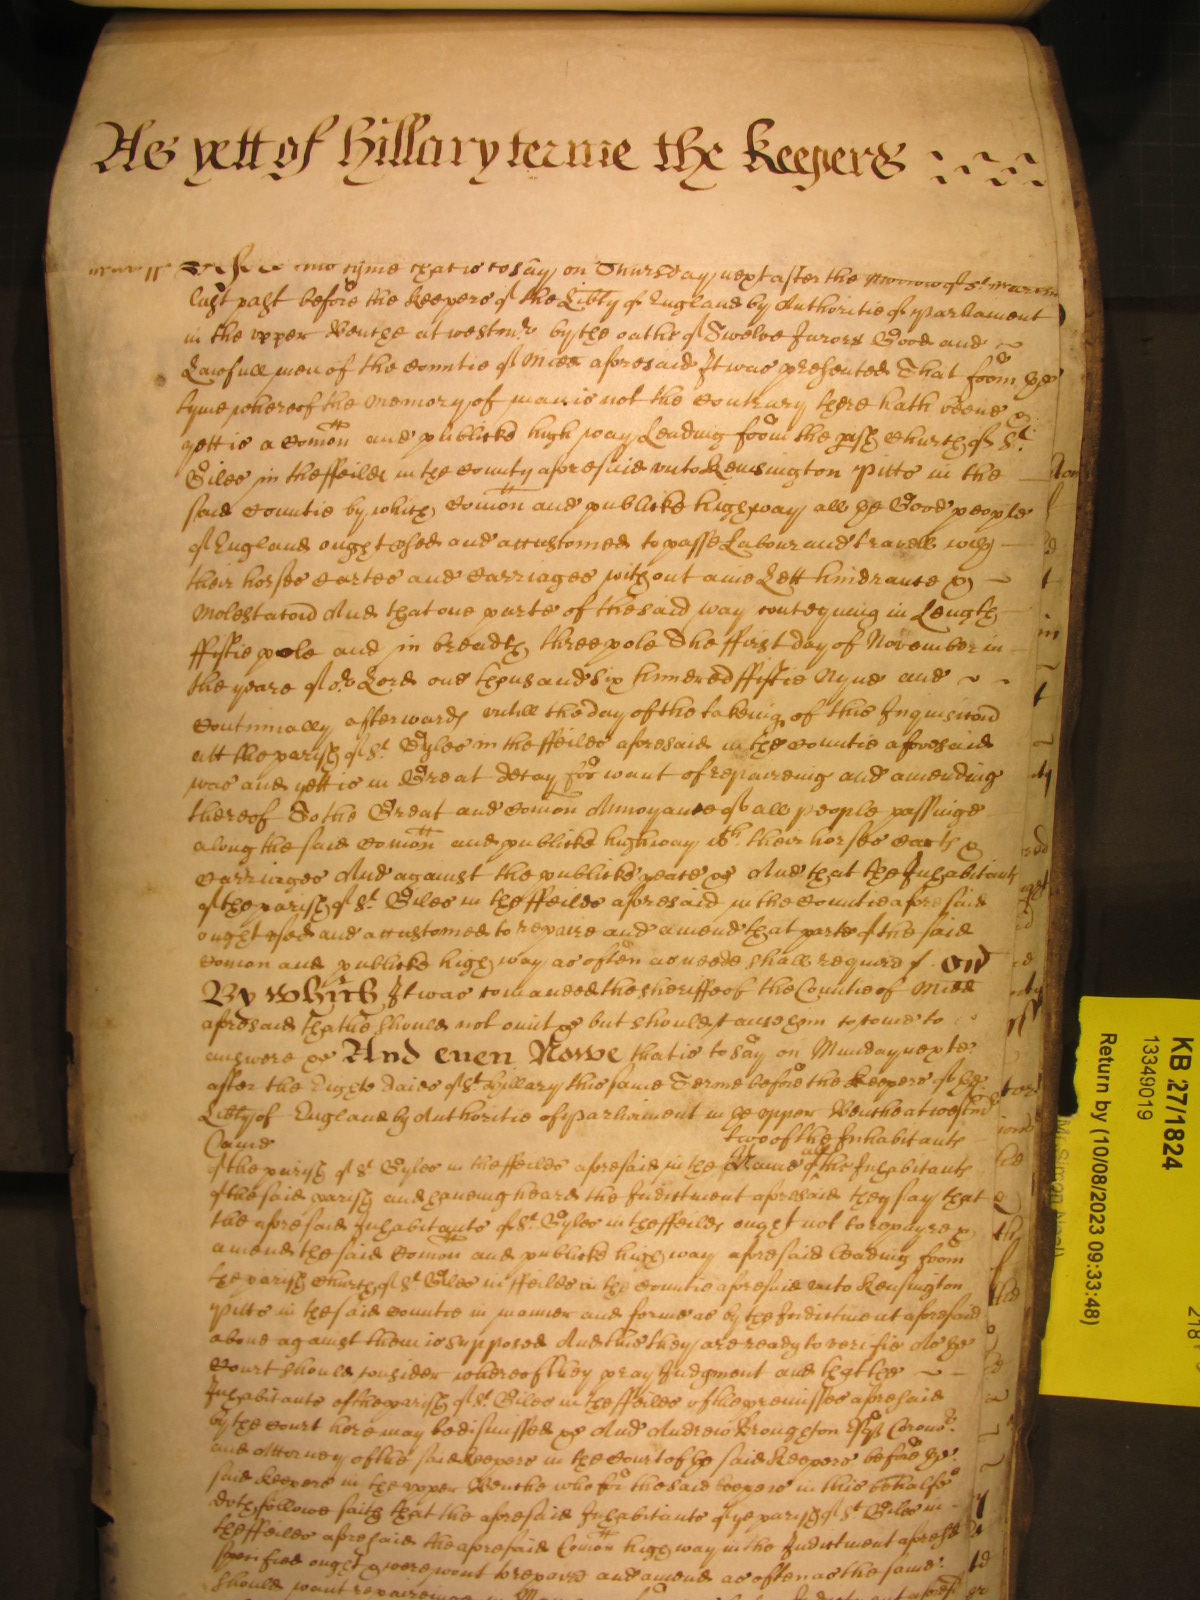 As yett of Hillary terme the Keepers
tyme that is to say on Thursday next after the Morrow of St. Martin
last past before the Keepers of the Libty of England by Authoritie of Parliament
in the upper Benche at Westmr. by the oathe of Twelve Jurors Good and
Lawfull men of the Countie of Midd aforesaid It was presented That from ye
tyme whereof the memory of man is not the contrary there hath beene &
yett is a Comon and publicke high way Leading from the pish Church of St.
Giles in the ffeilds in the County aforesaid unto Kensington Pitts in the
said Countie by which Comon and publicke highway all ye Good people
of England ought used and accustomed to passe Labour and travell with
their horses Cartes and Carriages without anie Lett hindrance or
Molestacon And that one parte of the said way conteyning in Length
ffiftie pole and in breadth three pole The ffirst day of November in
the yeare of or. Lord one thousand six hundred ffiftie Nyne and
Continually afterwards untill the day of the takeing of this Inquisicon
att the parish of St. Gyles in the ffeilds aforesaid in the Countie aforesaid
was and yett is in Great decay for want of repaireing and amending
thereof To the Great and Comon Annoyance of all people passinge
along the said Comon and publicke highway wth. their horses Carts &
Carriages And against the publicke peace &c And that the Inhabitants
of the parish of St. Giles in the ffeilds aforesaid in the Countie aforesaid
ought used and accustomed to repaire and amend that parte of the said
Comon and publicke high way as often as neede shall require
By which It was comanded the sheriffe of the Countie of Midd
aforesaid that he should not omitt &c but should cause them to come to
answere &c And even Nowe that is to say on Munday next
after the Eight daies of St. Hillary this same Terme before the Keepers of ye
Libty of England by Authoritie of Parliament in ye upper Benche at Westmr
Came two of the Inhabitants
of the parish of St. Gyles in the ffeilds aforesaid in the Name of all the Inhabitants
of the said parish and haveing heard the Indictment aforesaid they say that
the aforesaid Inhabitants of St. Gyles in the ffeilds ought not to repayre &
amend the said Comon and publicke high way aforesaid leading from
the parish Church of St. Giles in ffeilds in the Countie aforesaid unto Kensington
Pitts in the said Countie in manner and forme as by the Indictment aforesaid
above against them is supposed And this they are ready to verifie As ye
Court should consider whereof they pray Judgment and that the
Inhabitants of the parish of St. Giles in the ffeilds of the premisses aforesaid
by the Court here may be dismissed &c And Andrew Broughton Esqr. Coronr.
and Attorney of the said Keepers in the Court of ye said Keepers before ye
said Keepers in the upper Benche who for the said Keepers in this behalfe
doth followe saith that the aforesaid Inhabitants of ye parish of St. Giles in
the ffeilds aforesaid the aforesaid Comon high way in the Indictment aforesd
specified ought & were wont to repaire and amend as often as the same
should want repaireing
KB 27/1824
13349019
Return by (10/08/2023 09:33:48)